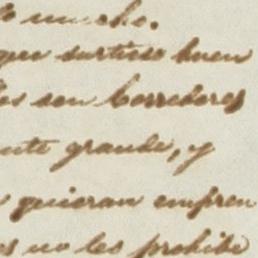 to mucho.
que surtiese buen
les son corredores
nte grande, y
quieran empren
es no les prohibe